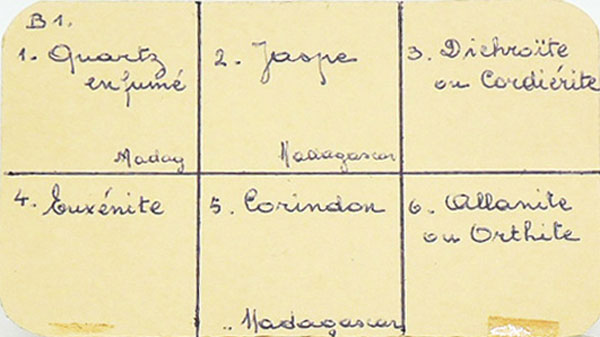 B1.
1. Quartz
enfumé
Madag
2. Jaspe
Madagascar
3. Dichroïte
ou Cordiérite
4. Euxénite
5. Corindon
.. Madagascar
6. Allanite
ou Orthite